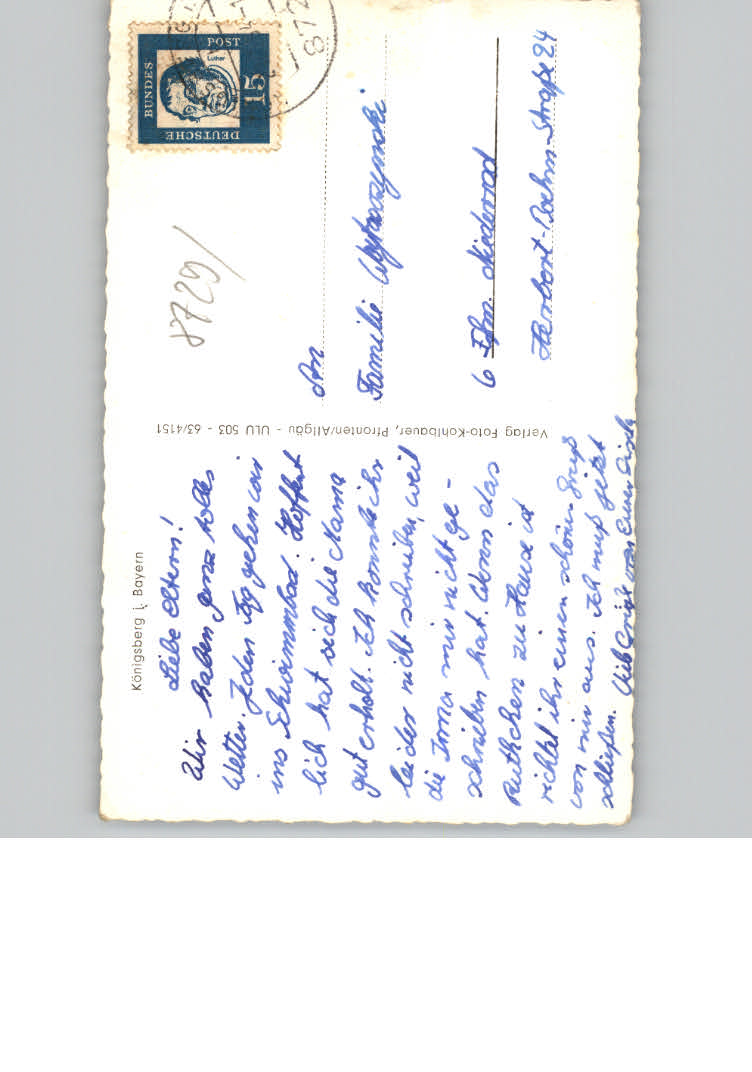 Königsberg i. Bayern
Liebe Eltern!
Wir haben ganz tolles
Wetter. Jeden Tag gehen wir
ins Schwimmbad. Hoffent
lich hat sich die Mama
gut erholt. Ich konnte ihr
leider nicht schreiben, weil
die Irma mir nicht ge-
schrieben hat. Wenn das
Ruthchen zu Hause ist
richtet ihr einen schönen Gruß
von mir aus. Ich muß jetzt
schließen.
Verlag Foto-Kohlbauer, Pfronten/Allgäu - ULU 503 - 63/4151
DEUTSCHE
BUNDES
POST
Luther
15
872
8729/
An
Familie
6 Ffm. Niederrad
Herbort-Boehm-Straße 24